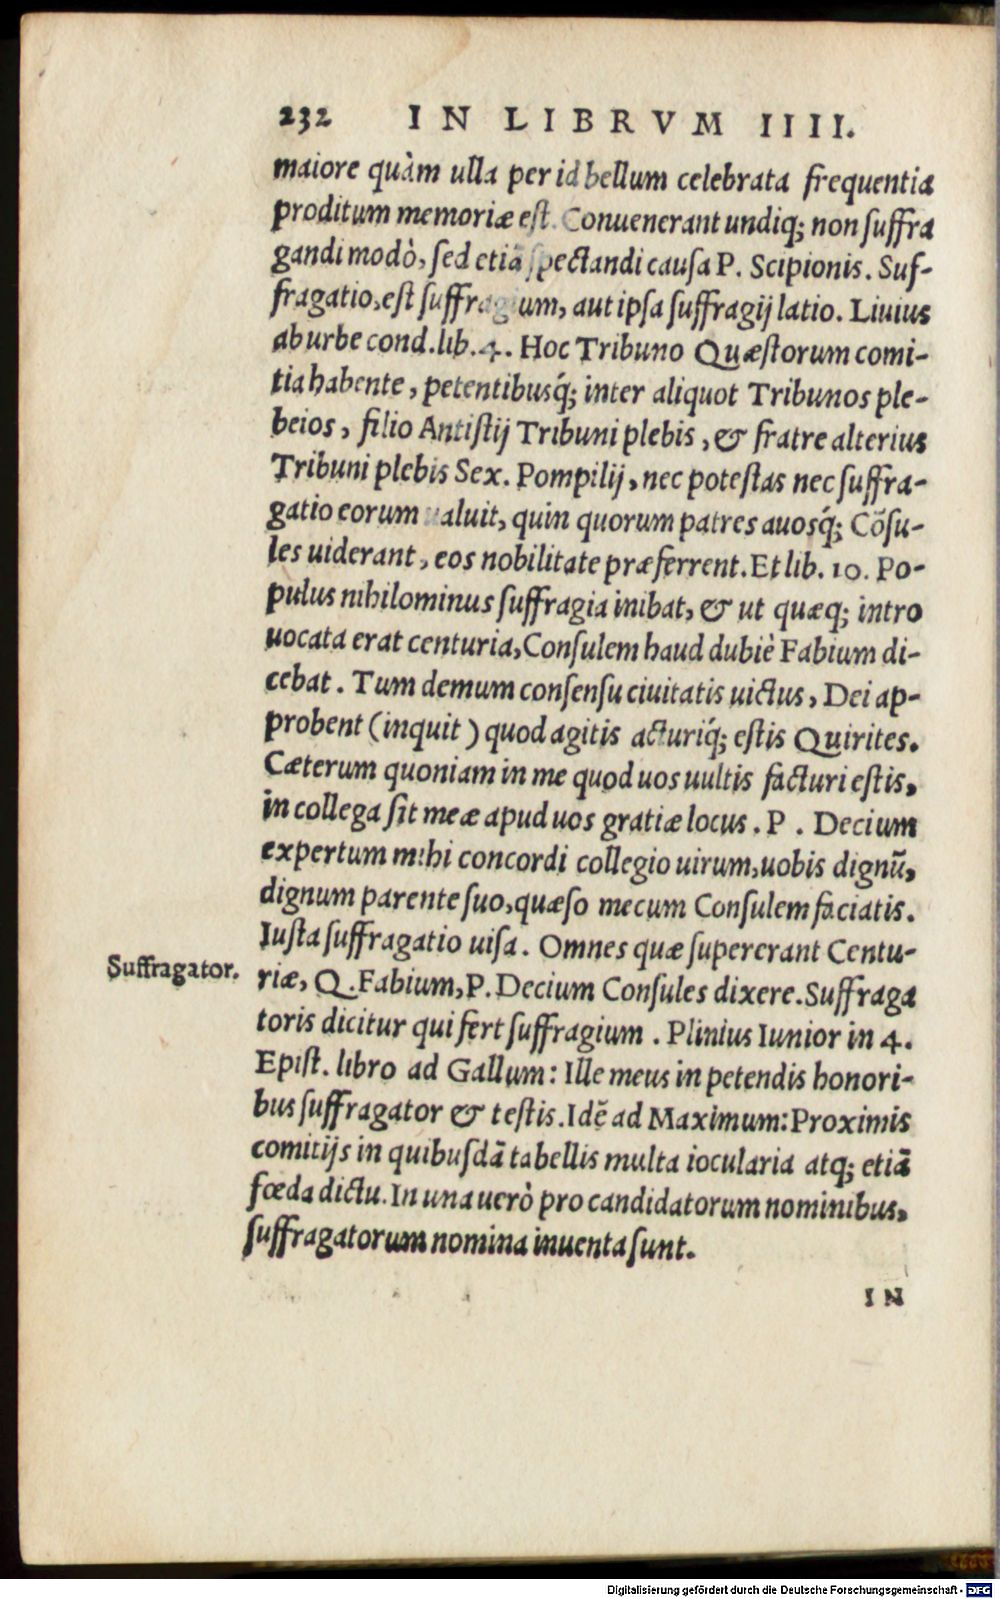 232 IN LIBRVM IIII.
maiore quàm ulla per id bellum celebrata frequentia
proditum memoriæ est. Conuenerant undiq; non suffra
gandi modò, sed etiã spectandi causa P. Scipionis. Suf-
fragatio, est suffragium, aut ipsa suffragij latio. Liuius
ab urbe cond. lib. 4. Hoc Tribuno Quæstorum comi-
tia habente, petentibusq́; inter aliquot Tribunos ple-
beios, filio Antistij Tribuni plebis, & fratre alterius
Tribuni plebis Sex. Pompilij, nec potestas nec suffra-
gatio eorum ualuit, quin quorum patres auosq́; Cõsu-
les uiderant, eos nobilitate præferrent. Et lib. 10. Po-
pulus nihilominus suffragia inibat, & ut quæq; intro
uocata erat centuria, Consulem haud dubiè Fabium di-
cebat. Tum demum consensu ciuitatis uictus, Dei ap-
probent (inquit) quod agitis acturiq́; estis Quirites.
Cæterum quoniam in me quod uos uultis facturi estis,
in collega sit meæ apud uos gratiæ locus. P. Decium
expertum mihi concordi collegio uirum, uobis dignũ,
dignum parente suo, quæso mecum Consulem faciatis.
Iusta suffragatio uisa. Omnes quæ supererant Centu-
Suffragator.
riæ, Q. Fabium, P. Decium Consules dixere. Suffraga
toris dicitur qui fert suffragium. Plinius Iunior in 4.
Epist. libro ad Gallum: Ille meus in petendis honori-
bus suffragator & testis. Idẽ ad Maximum: Proximis
comitijs in quibusdã tabellis multa iocularia atq; etiã
fœda dictu. In una uerò pro candidatorum nominibus,
suffragatorum nomina inuenta sunt.
IN
Digitalisierung gefördert durch die Deutsche Forschungsgemeinschaft - DFG